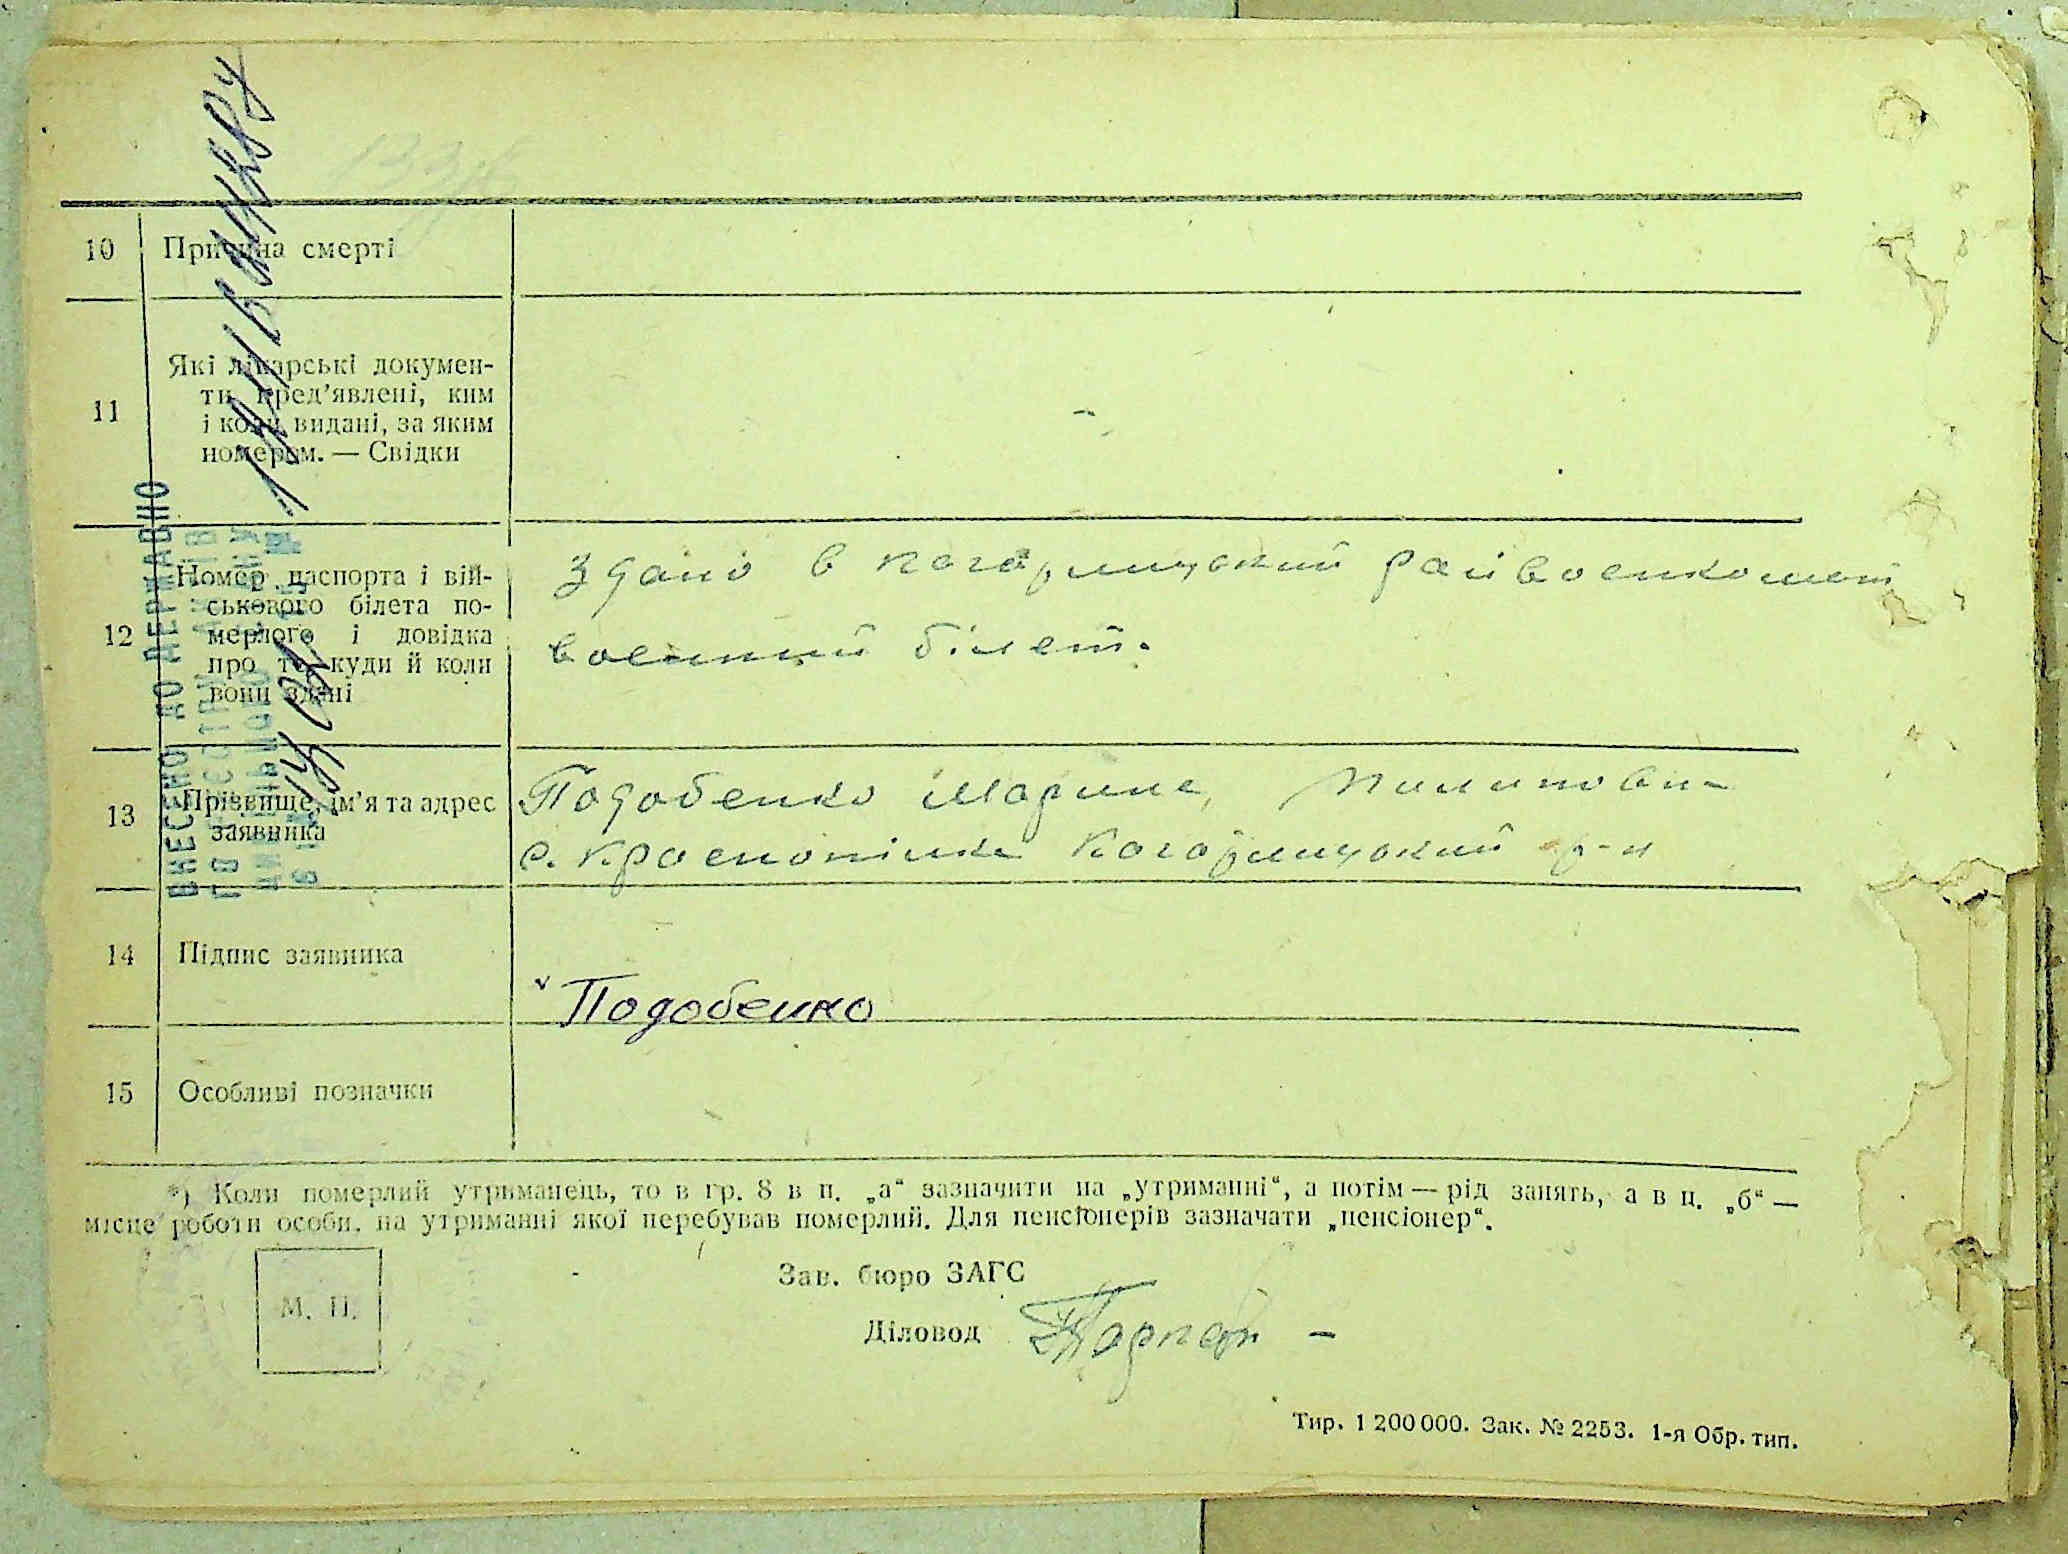 10 Причина смерті
11 Які лікарські докумен-
ти пред’явлені, ким
і коли видані, за яким
номером. — Свідки
-
12 Номер паспорта і вій-
ськового білета по-
мерлого і довідка
про те, куди й коли
вони здані
Здано в Кагарлицький райвоенкомат
военний білет.
13 Прізвище, ім’я та адрес
заявника
Подобенко Марина,
с. Краснопілка Кагарлицкий р-н
14 Підпис заявника
Подобенко
15 Особливі позначки
*) Коли померлий утриманець, то в гр. 8 в п. „а“ зазначити на „утриманні“, а потім — рід занять, а в п. „б“ —
місце роботи особи, на утриманні якої перебував померлий. Для пенсіонерів зазначати „пенсіонер“.
М. П.
Зав. бюро ЗАГС
Діловод
Тир. 1 200 000. Зак. № 2253. 1-я Обр. тип.
ВНЕСЕНО ДО ДЕРЖАВНО
ГО РЕЄСТРУ АКТІВ